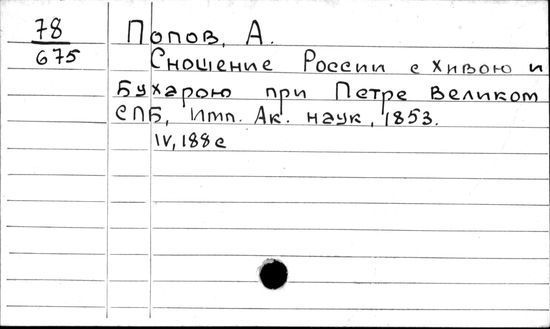 78
675
Попов, А.
Сношение России с Хивою и
Бухарою при Петре Великом
СПБ, Имп. Ак. наук, 1853.
IV, 188с